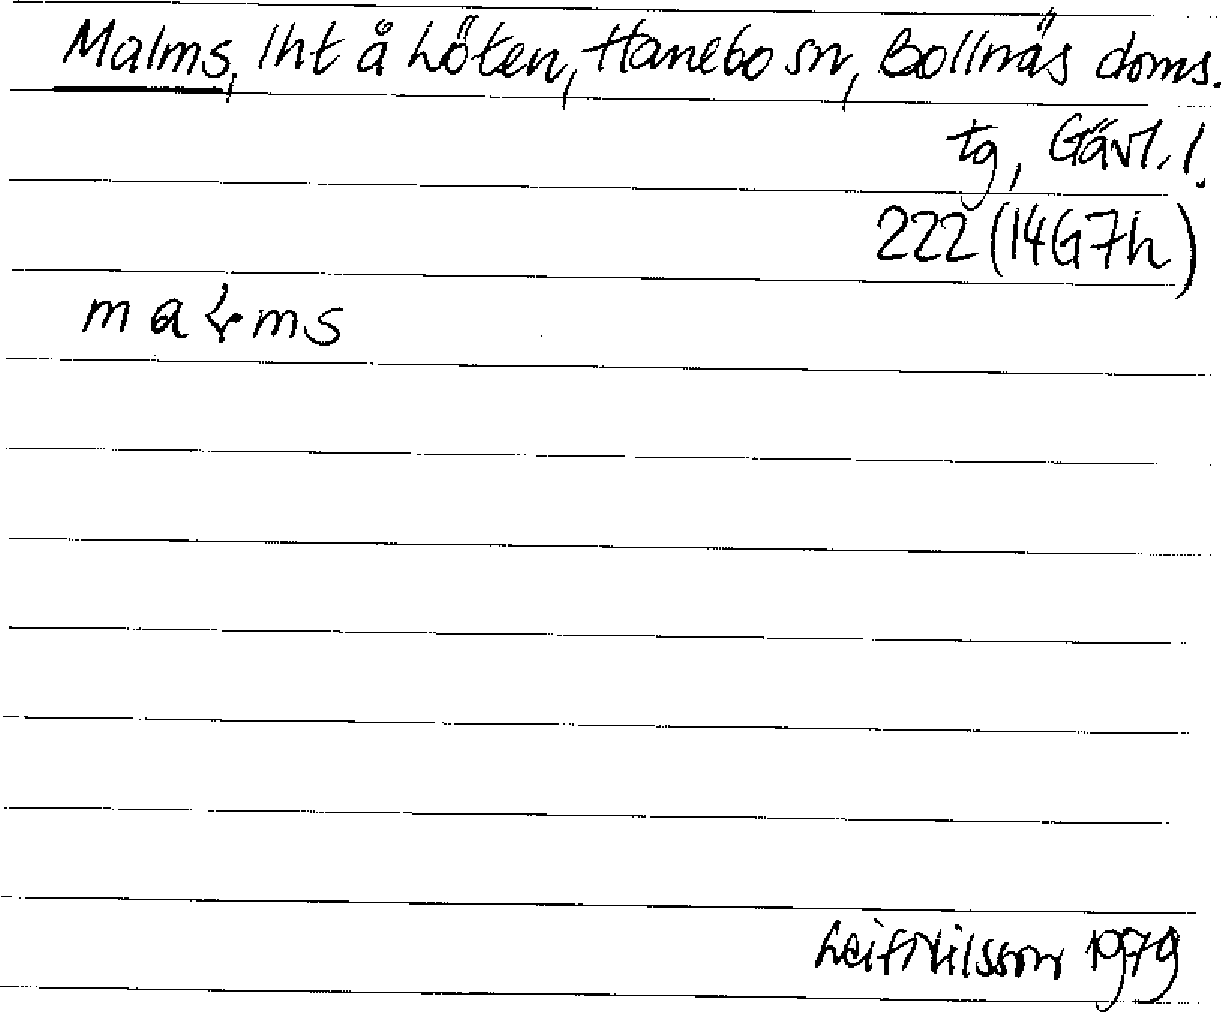 Malms, lht å Löten, Hanebo sn, Bollnäs doms.
tg, Gävl. l.
222 (14G7h)
Leif Nilsson 1979